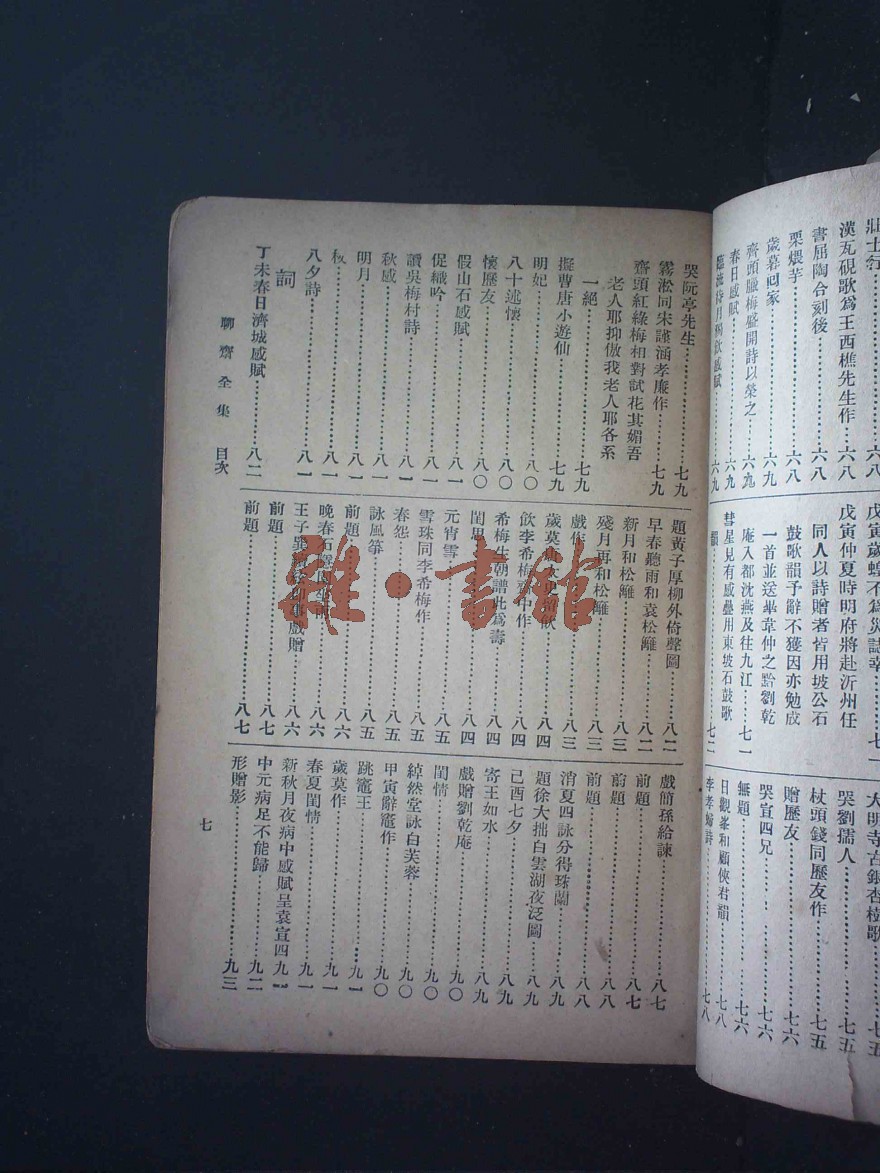 漢瓦硯歌爲王西樵先生作⋯⋯六八
書屈陶合刻後⋯⋯六八
栗煨芋⋯⋯六八
歲暮囘家⋯⋯六九
齊頭臘梅盛開詩以榮之⋯⋯六九
春日感賦⋯⋯六九
戊寅歲蝗不爲災誌幸⋯⋯七一
戊寅仲夏時明府將赴沂州任
同人以詩贈者皆用坡公石
鼓歌韻予辭不獲因亦勉成
一首並送畢韋仲之黔劉乾
庵入都沈燕及往九江⋯⋯七一
彗星見有感疊用東坡石鼓歌
韻⋯⋯七二
大明寺古銀杏樹歌⋯⋯七五
哭劉孺人⋯⋯七五
杖頭錢同歷友作⋯⋯七五
贈歷友⋯⋯七六
哭宣四兄⋯⋯七六
無題⋯⋯七六
日觀峯和顧俠君韻⋯⋯七八
李孝婦詩⋯⋯七八
哭阮亭先生⋯⋯七九
霧淞同朱謹涵孝廉作⋯⋯七九
齋頭紅綠梅相對試花其媚吾
老人耶抑傲我老人耶各系
一絕⋯⋯七九
擬曹唐小遊仙⋯⋯七九
明妃⋯⋯八〇
八十述懷⋯⋯八〇
懷歷友⋯⋯八〇
假山石感賦⋯⋯八一
促織吟⋯⋯八一
讀吳梅村詩⋯⋯八一
秋感⋯⋯八一
明月⋯⋯八一
八夕詩⋯⋯八一
詞
丁未春日濟城感賦⋯⋯八二
題黄子厚柳外倚聲圖⋯⋯八二
早春聽雨和袁松籬⋯⋯八二
新月和松籬⋯⋯八三
殘月再和松籬⋯⋯八三
戲作⋯⋯八三
歲莫⋯⋯八四
飲李希梅齋中作⋯⋯八四
希梅生朝譜此爲壽⋯⋯八四
閨思⋯⋯八四
元宵雪⋯⋯八五
雪珠同李希梅作⋯⋯八五
春怨⋯⋯八五
詠風箏⋯⋯八五
前題⋯⋯八六
晚春石隱園⋯⋯八六
王子巽⋯⋯戲贈⋯⋯八六
前題⋯⋯八七
前題⋯⋯八七
戲簡孫給諫⋯⋯八七
前題⋯⋯八七
前題⋯⋯八八
前題⋯⋯八八
消夏四詠分得珠蘭⋯⋯八八
題徐大拙白雲湖夜泛圖⋯⋯八九
己酉七夕⋯⋯八九
寄王如水⋯⋯八九
戲贈劉乾庵⋯⋯九〇
閨情⋯⋯九〇
綽然堂詠白芙蓉⋯⋯九〇
甲寅辭竈作⋯⋯九〇
跳竈王⋯⋯九一
歲莫作⋯⋯九一
春夏閨情⋯⋯九一
新秋月夜病中感賦呈袁宣四九一
中元病足不能歸⋯⋯九二
形贈影⋯⋯九三
聊齋全集 目次
七
雜·書館